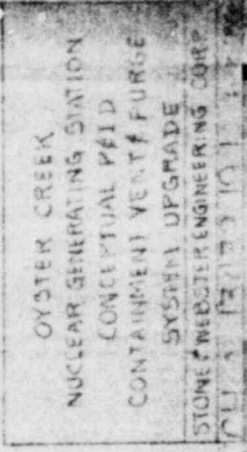 OYSTER CREEK
NUCLEAR GENERATING STATION
CONCEPTUAL P&ID
CONTAINMENT VENT & PURGE
SYSTEM UPGRADE
STONE & WEBSTER ENGINEERING CORP